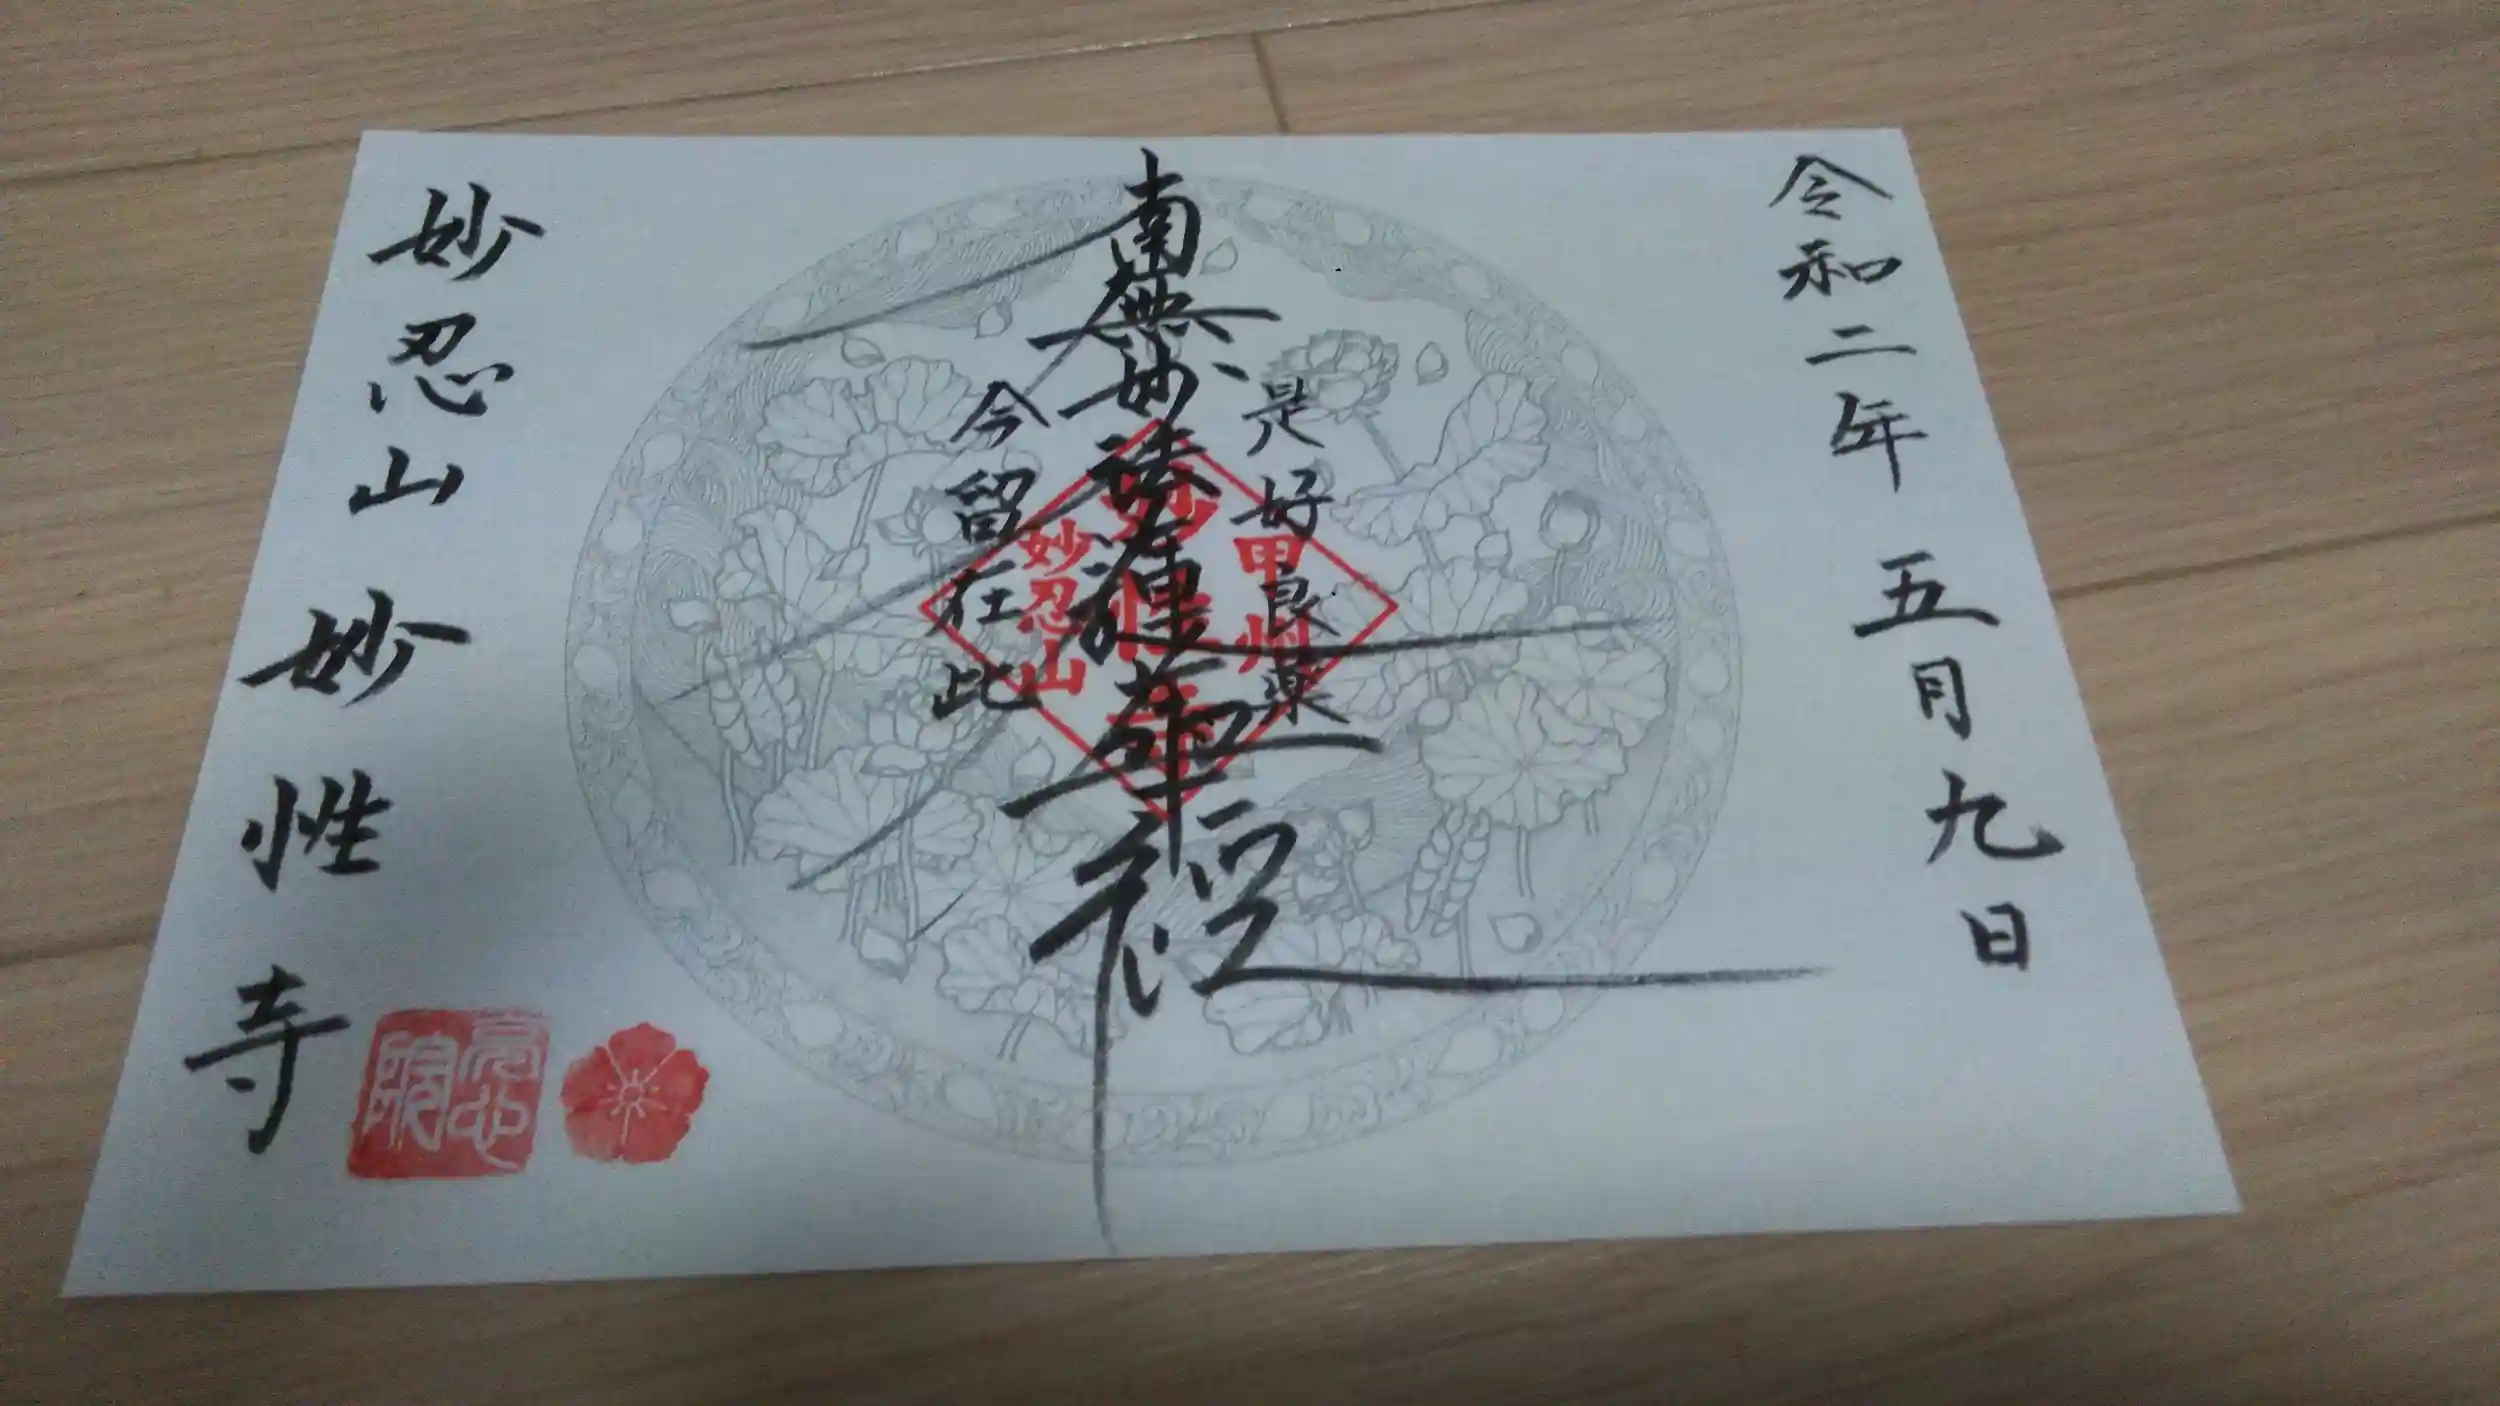 令和二年 五月九日
是好良薬
南無妙法蓮華経
今留在此
甲州
妙性寺
妙忍山
妙忍山 妙性寺